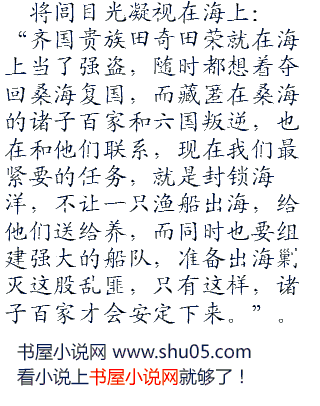 将闾目光凝视在海上：
“齐国贵族田奇田荣就在海
上当了强盗，随时都想着夺
回桑海复国，而藏匿在桑海
的诸子百家和六国叛逆，也
在和他们联系，现在我们最
紧要的任务，就是封锁海
洋，不让一只渔船出海，给
他们送给养，而同时也要组
建强大的船队，准备出海剿
灭这股乱匪，只有这样，诸
子百家才会安定下来。”。
书屋小说网 www.shu05.com
看小说上书屋小说网就够了！